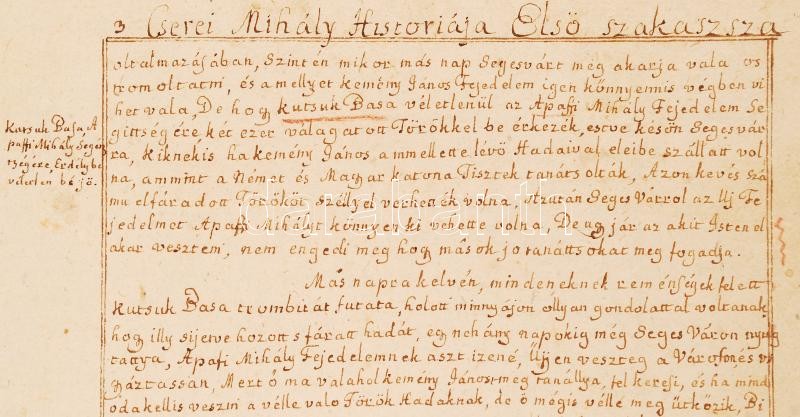 3 Cserei Mihály Historiája Elsö szakaszsza
oltalmazásában, Szintén mikor más nap Segesvárt meg akarja vala os
tromoltatni, és a mellyet kemény János Fejedelem igen könnyennis végben vi
het vala, De hogy kutsuk Basa véletlenül az Apaffi Mihály Fejedelem Se
gittségére két ezer válagatott Törökkel be érkezék, estve késön Segesvár
ra, Kiknekis ha kemény János a mmellette lévö Hadaival eleibe szállatt vol
na, ammint a Német és Magyar katona Tisztek tanátsolták, Azon kevés szá
mu elfáradott Törököt széllyel verhették volna, Azután Seges Várrol az Uj Fe
jedelmet Apaffi Mihályt könnyen ki vehette volna, De ugy jár az akit Isten el
akar veszteni, nem engedi meg hogy mások jo tanáttsokat meg fogadja.
Kutsuk Basa, A
paffi Mihály Segit
tségére, Erdélybe
véletlen bé jö.
Más napra kelvén, mindeneknek reménségek felett
kutsuk Basa trombitát futata, holott minnyájon ollyan gondolattal voltanak
hogy illy sijetve hozott s fáratt hadát, egy nehány napokig még Seges Váron nyug
tattya, Apafi Mihály Fejedelemnek aszt izené, Ülljen veszteg a Városon, és vi
gáztassan, Mert ö ma valahol kemény Jánost meg tanállya, fel keresi, és ha mind
oda kellis veszni a vélle valo Török Hadaknak, de ö mégis vélle meg ütközik, Bi